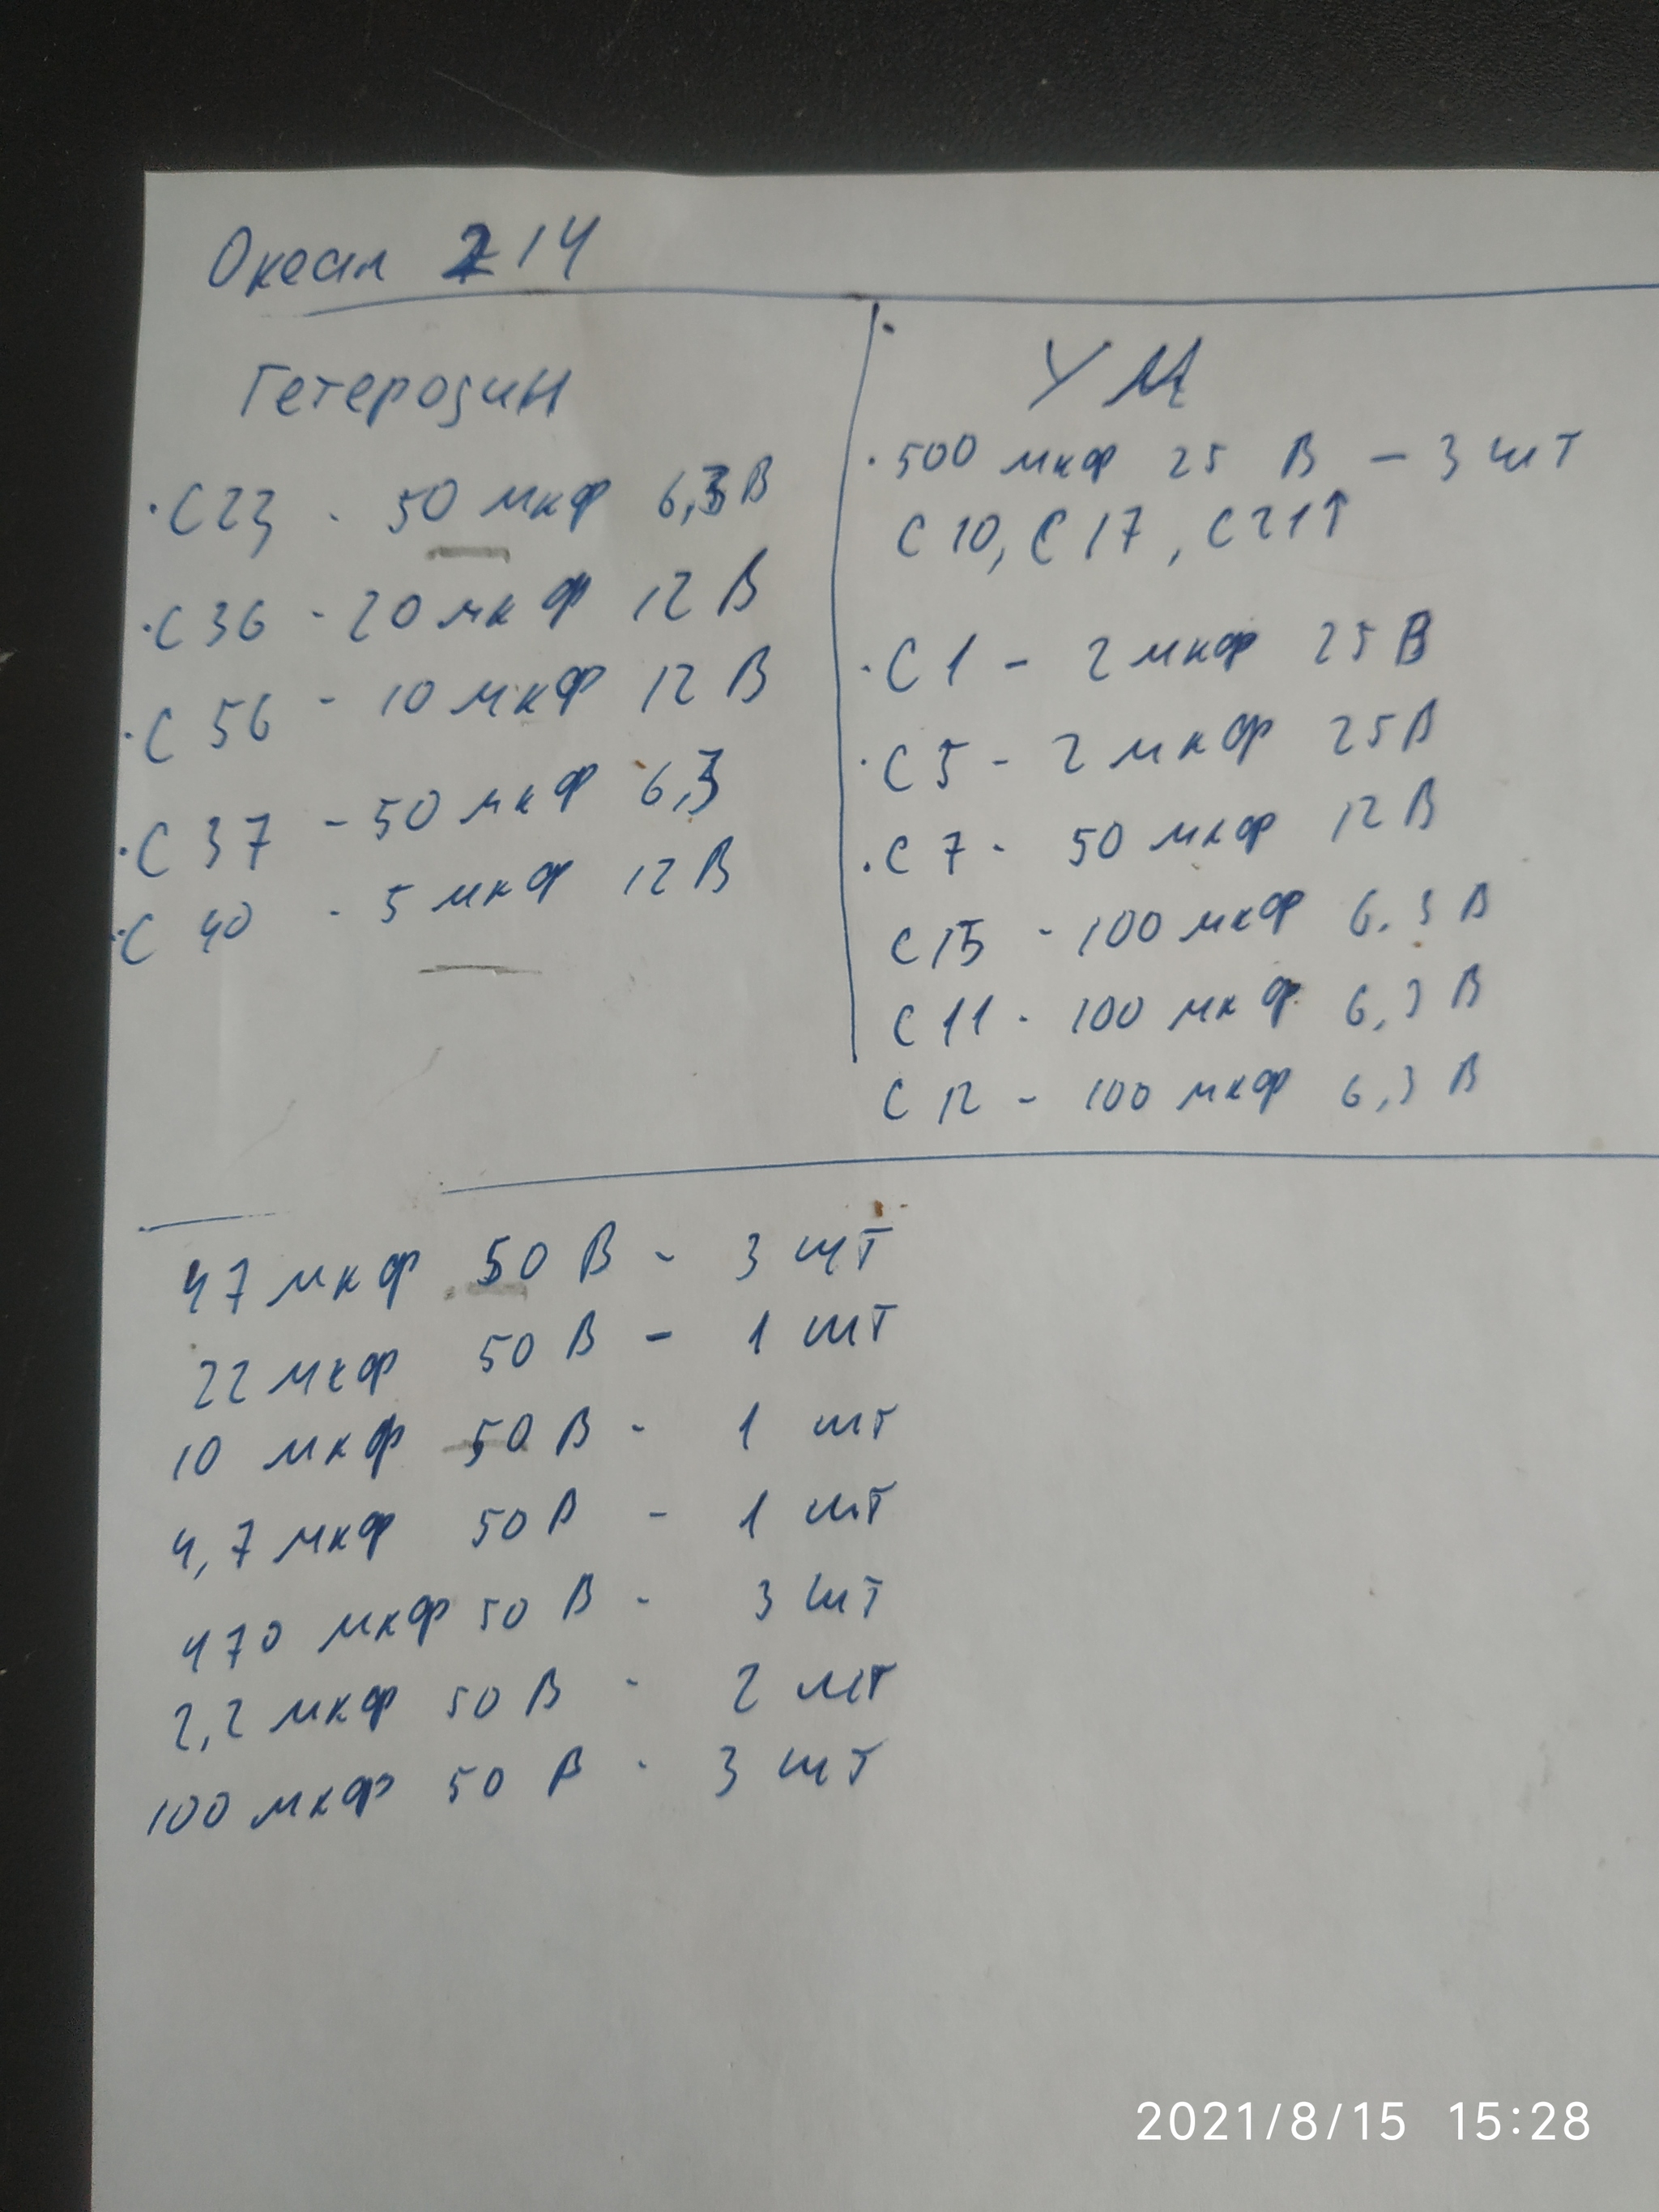 Океан 214
Гетеродин
·С23 - 50 мкф 6,3В
·С36 - 20 мкф 12 В
·С 56 - 10 мкф 12 В
·С 37 - 50 мкф 6,3
·С 40 - 5 мкф 12 В
УМ
·500 мкф 25 В - 3 шт
С 10, С 17, С21↑
·С 1 - 2 мкф 25 В
·С 5 - 2 мкф 25 В
·С 7 - 50 мкф 12 В
С 15 - 100 мкф 6.3 В
С 11 - 100 мкф 6,3 В
С 12 - 100 мкф 6,3 В
47 мкф 50 В - 3 шт
22 мкф 50 В - 1 шт
10 мкф 50 В - 1 шт
4,7 мкф 50 В - 1 шт
470 мкф 50 В - 3 шт
2,2 мкф 50 В - 2 шт
100 мкф 50 В - 3 шт
2021/8/15 15:28